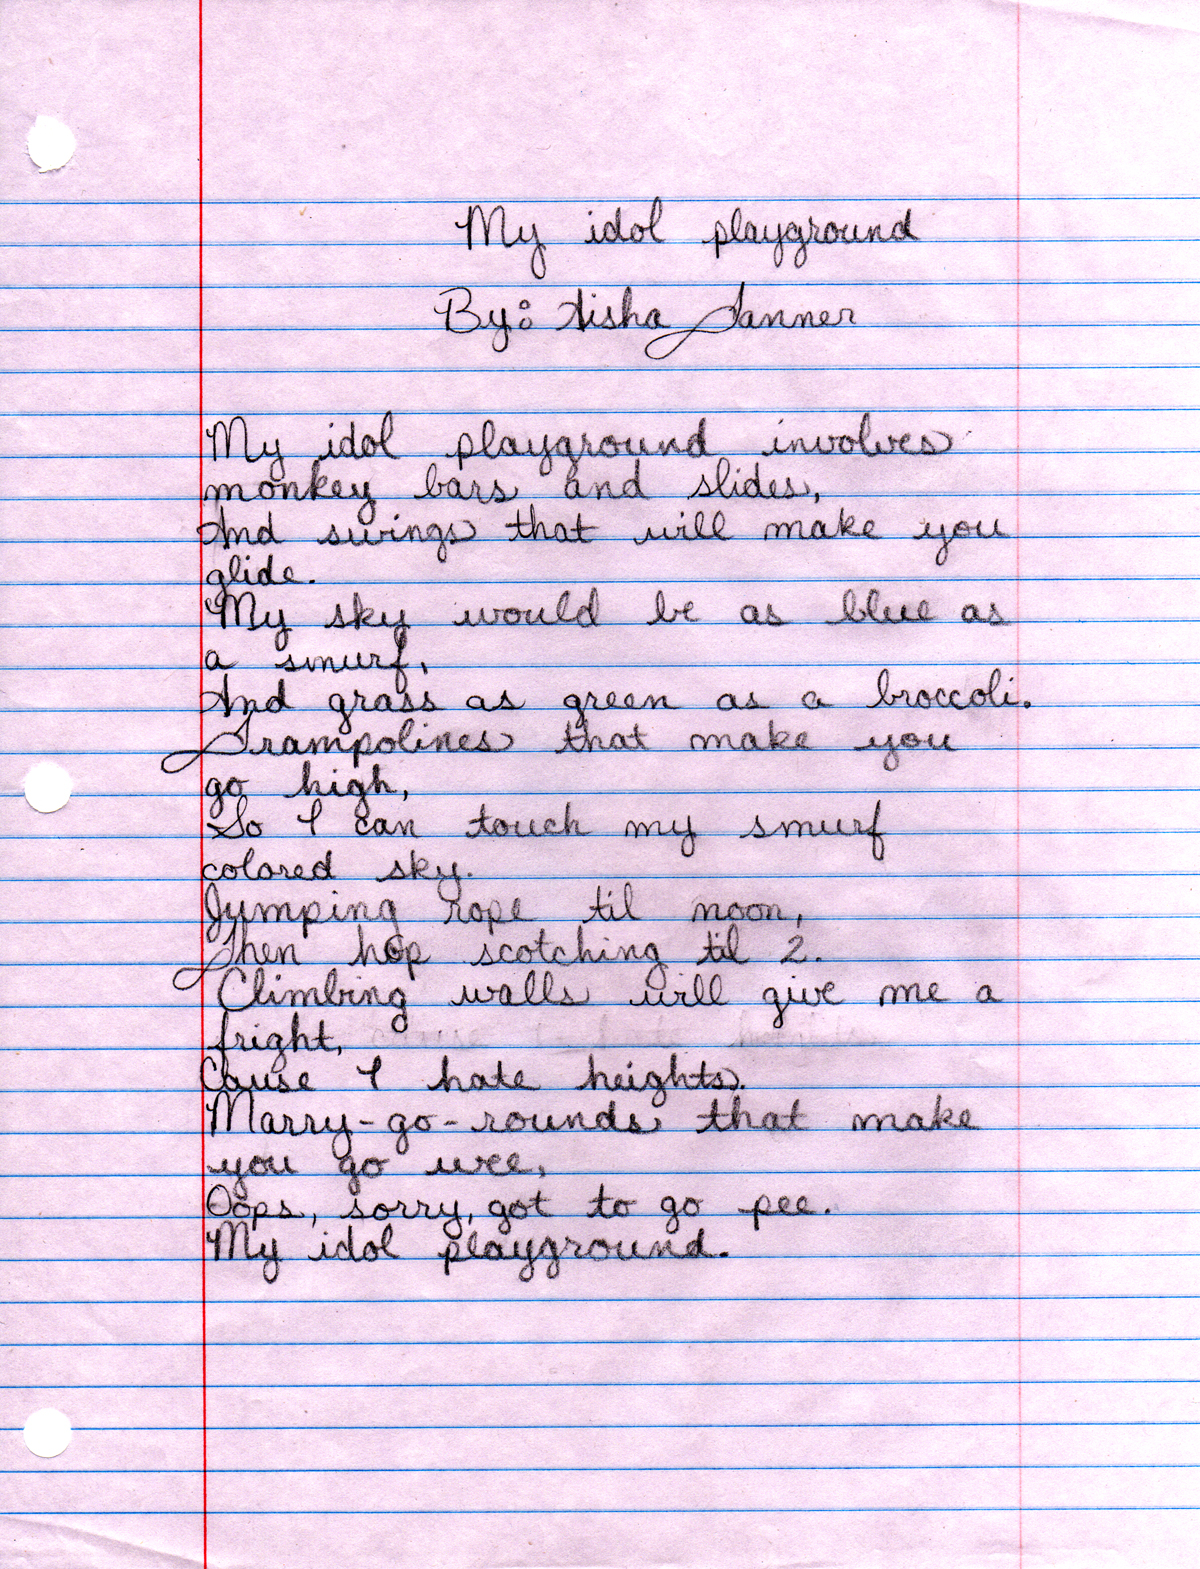 My idol playground
By: Aisha Tanner
My idol playground involves
monkey bars and slides,
And swings that will make you
glide.
My sky would be as blue as
a smurf,
And grass as green as a broccoli.
Trampolines that make you
go high,
So I can touch my smurf
colored sky.
Jumping rope til noon,
Then hop scotching til 2.
Climbing walls will give me a
fright,
Cause I hate heights.
Marry-go-rounds that make
you go wee,
Oops, sorry, got to go pee.
My idol playground.